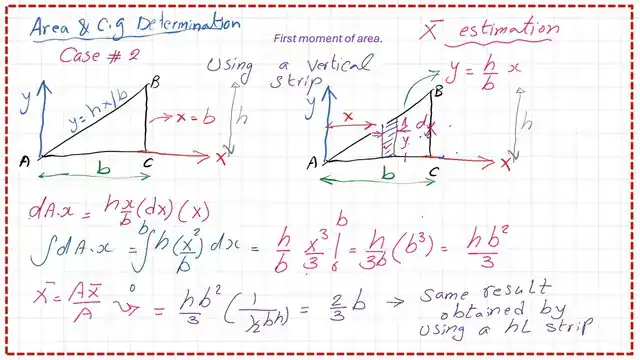 Area & C.g Determination
First moment of area.
X̄ estimation
Case # 2
Using a vertical strip
y = h/b x
y
B
y = hx/b
x = b
h
A
C
X
b
y
B
x
dx
y
h
A
C
X
b
dA.x = hx/b (dx)(x)
∫dA.x = ∫₀ᵇ h(x²/b) dx = h/b x³/3 |₀ᵇ = h/3b (b³) = hb²/3
X̄ = AX̄/A = hb²/3 (1/(½bh)) = 2/3 b → Same result
obtained by
using a hL strip